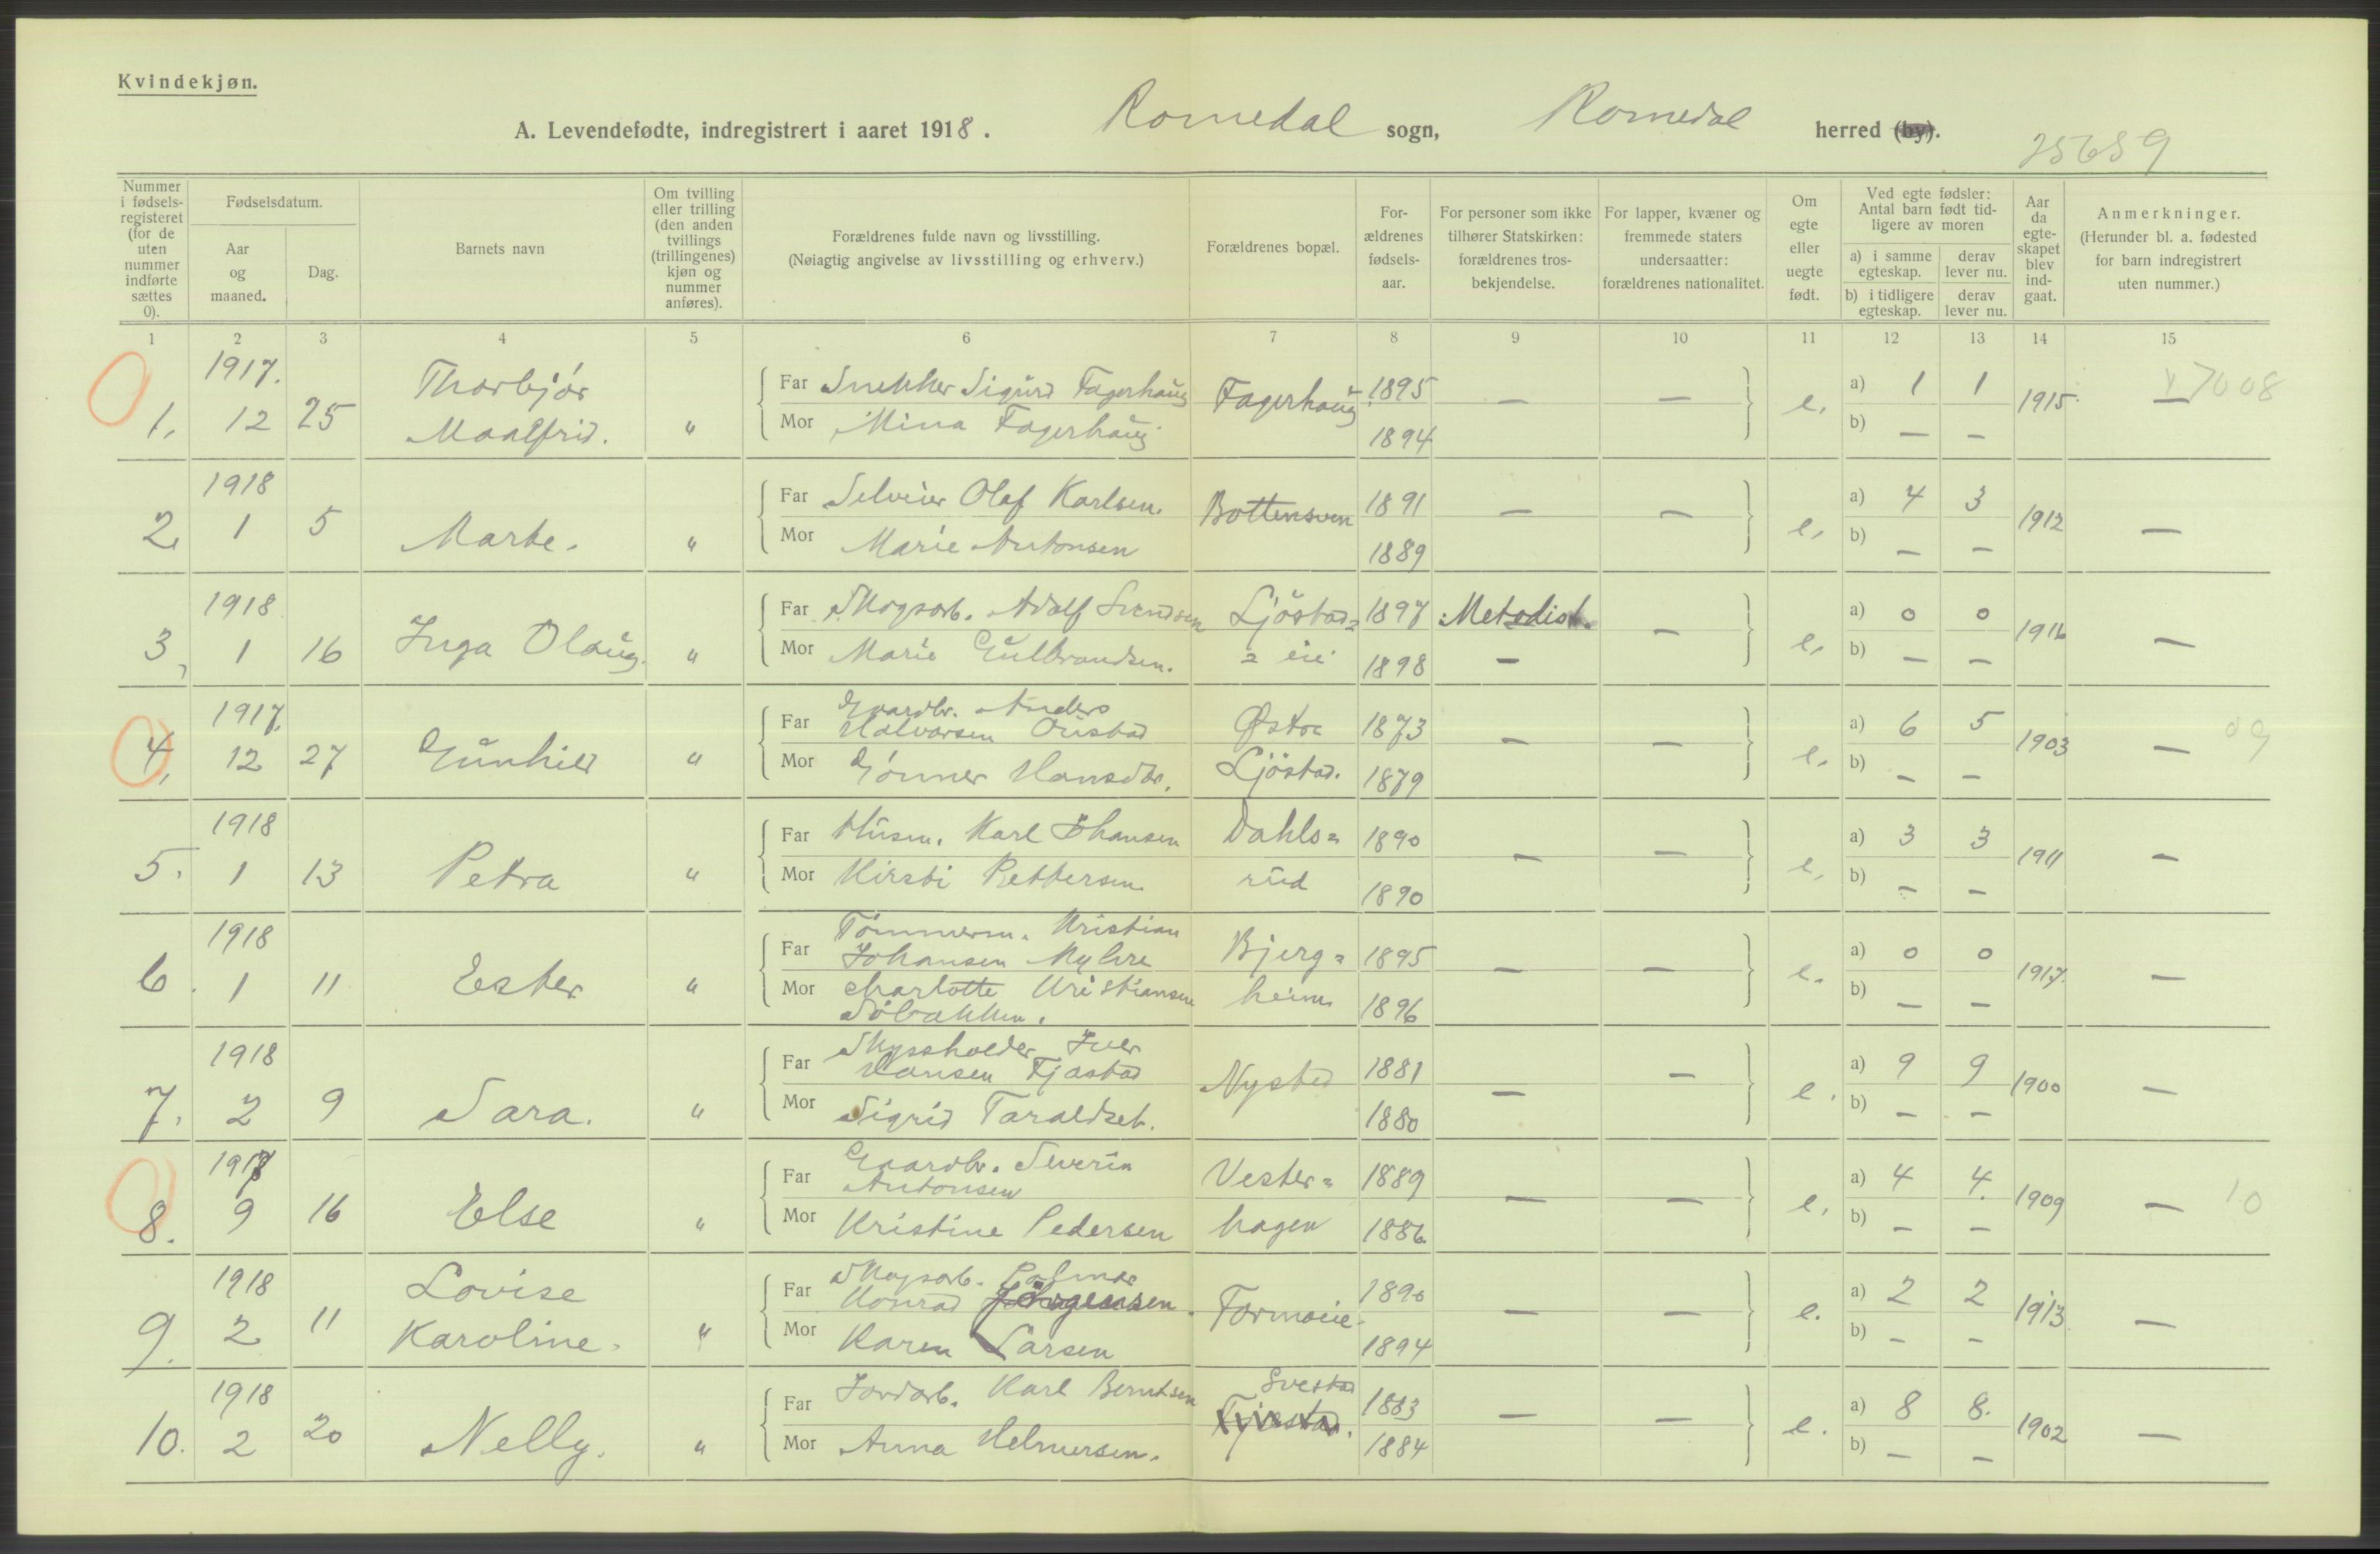 Kvindekjøn.
A. Levendefødte, indregistrert i aaret 1918. Romedal sogn, Romedal herred (by).
25659
Nummer i fødsels-registeret (for de uten nummer indførte sættes 0).
Fødselsdatum.
Aar og maaned.
Dag.
Barnets navn
Om tvilling eller trilling (den anden tvillings (trillingenes) kjøn og nummer anføres).
Forældrenes fulde navn og livsstilling.
(Nøiagtig angivelse av livsstilling og erhverv.)
Forældrenes bopæl.
For-ældrenes fødsels-aar.
For personer som ikke tilhører Statskirken: forældrenes tros-bekjendelse.
For lapper, kvæner og fremmede staters undersaatter: forældrenes nationalitet.
Om egte eller uegte født.
Ved egte fødsler: Antal barn født tid-ligere av moren
a) i samme egteskap.
derav lever nu.
b) i tidligere egteskap.
derav lever nu.
Aar da egte-skapet blev ind-gaat.
Anmerkninger.
(Herunder bl. a. fødested for barn indregistrert uten nummer.)
1 2 3 4 5 6 7 8 9 10 11 12 13 14 15
1917.
1, 12 25 Thorbjør Maalfrid. "
Far Snekker Sigurd Fagerhaug Fagerhaug 1895 — — e, a) 1 1 1915 — 7008
Mor Mina Fagerhaug 1894 b) — —
1918
2, 1 5 Marte. "
Far Selveier Olaf Karlsen. Bottensven 1891 — — e, a) 4 3 1912 —
Mor Marie Antonsen 1889 b) — —
1918
3, 1 16 Inga Olaug. "
Far Skogsarb. Adolf Svendsen Ljöstad= 1897 Metodist. — e, a) 0 0 1916 —
Mor Marie Gulbrandsen. = eie 1898 — b) — —
1917.
4, 12 27 Gunhild "
Far Gaardbr. Anders Halvorsen Oustad Østre 1873 — — e, a) 6 5 1903 — 09
Mor Gönner Hansdtr. Ljöstad. 1879 b) — —
1918
5. 1 13 Petra "
Far Husm. Karl Johansen Dahls= 1890 — — e, a) 3 3 1911 —
Mor Kirsti Pettersen. rud 1890 b) — —
1918
6. 1 11 Ester "
Far Tömmerm. Kristian Johansen Myhre Bjerg= 1895 — — e. a) 0 0 1917. —
Mor Charlotte Kristiansen Söbakken. heim 1896 b) — —
1918
7. 2 9 Sara. "
Far Skyssholder Iver Hansen Tjästad Nysted 1881 — — e. a) 9 9 1900 —
Mor Sigrid Taraldset. 1880 b) — —
1917
8. 9 16 Else "
Far Gaardbr. Severin Antonsen Vester= 1889 — — e, a) 4 4. 1909 — 10
Mor Kristine Pedersen hagen 1886. b) — —
1918
9. 2 11 Lovise Karoline. "
Far Skogsarb. Palmar Konrad Jörgensen. Formoeie. 1890 — — e. a) 2 2 1913 —
Mor Karen Larsen 1894 b) — —
1918
10. 2 20 Nelly. "
Far Jordarb. Karl Berntsen Svestad 1883 — — e. a) 8 8. 1902 —
Mor Anna Helmersen. 1884 b) — —